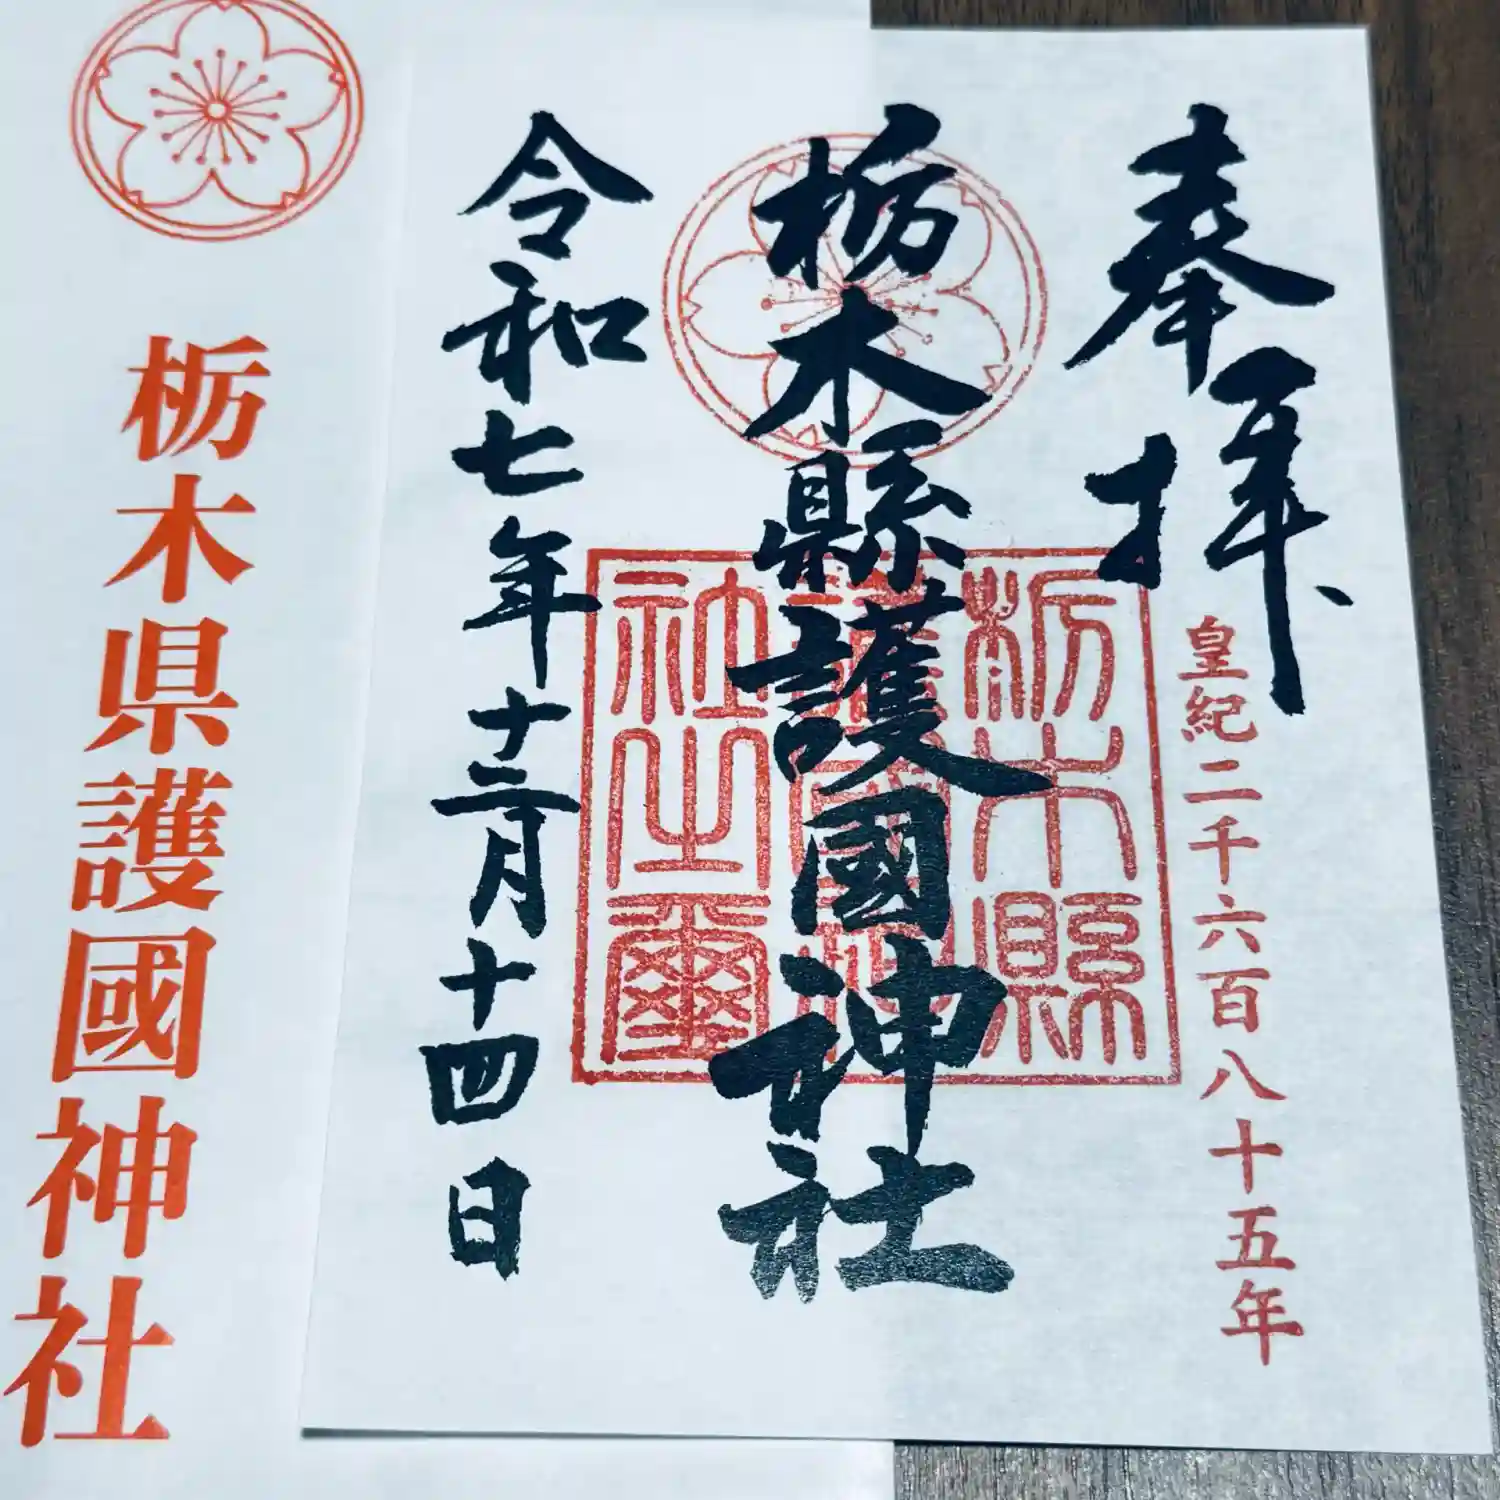 奉拝
皇紀二千六百八十五年
栃木縣護國神社
栃木縣
護國神
社之璽
令和七年十二月十四日
栃木県護國神社